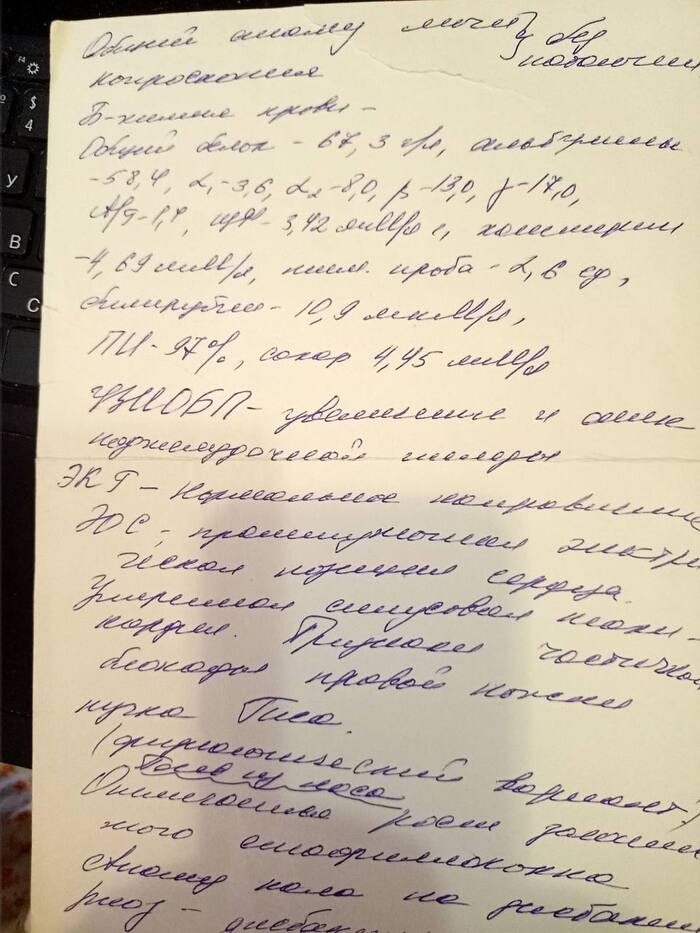 Общий анализ мочи } без
копроскопия патологии
Б-химия крови –
Общий белок – 67,3 г/л, альбумины
– 58,4, α₁ – 3,6, α₂ – 8,0, β – 13,0, γ – 17,0,
А/G – 1,4, – 3,42 ммМ/л, холестерин
– 4,69 ммМ/л, тим. проба – 2,6 ед,
билирубин – 10,9 мкмМ/л,
ПИ – 97%, сахар 4,45 ммМ/л
УЗИ ОБП – увеличение и
поджелудочной железы
ЭКГ – Нормальное направление
ЭОС, промежуточная электри
ческая позиция сердца.
Умеренная синусовая тахи-
кардия. Признаки частичной
блокады правой ножки
пучка Гиса.
(физиологический вариант)
Посев из носа
Описание рост золотис
того стафилококка
Анализ кала на дисбакте
риоз –